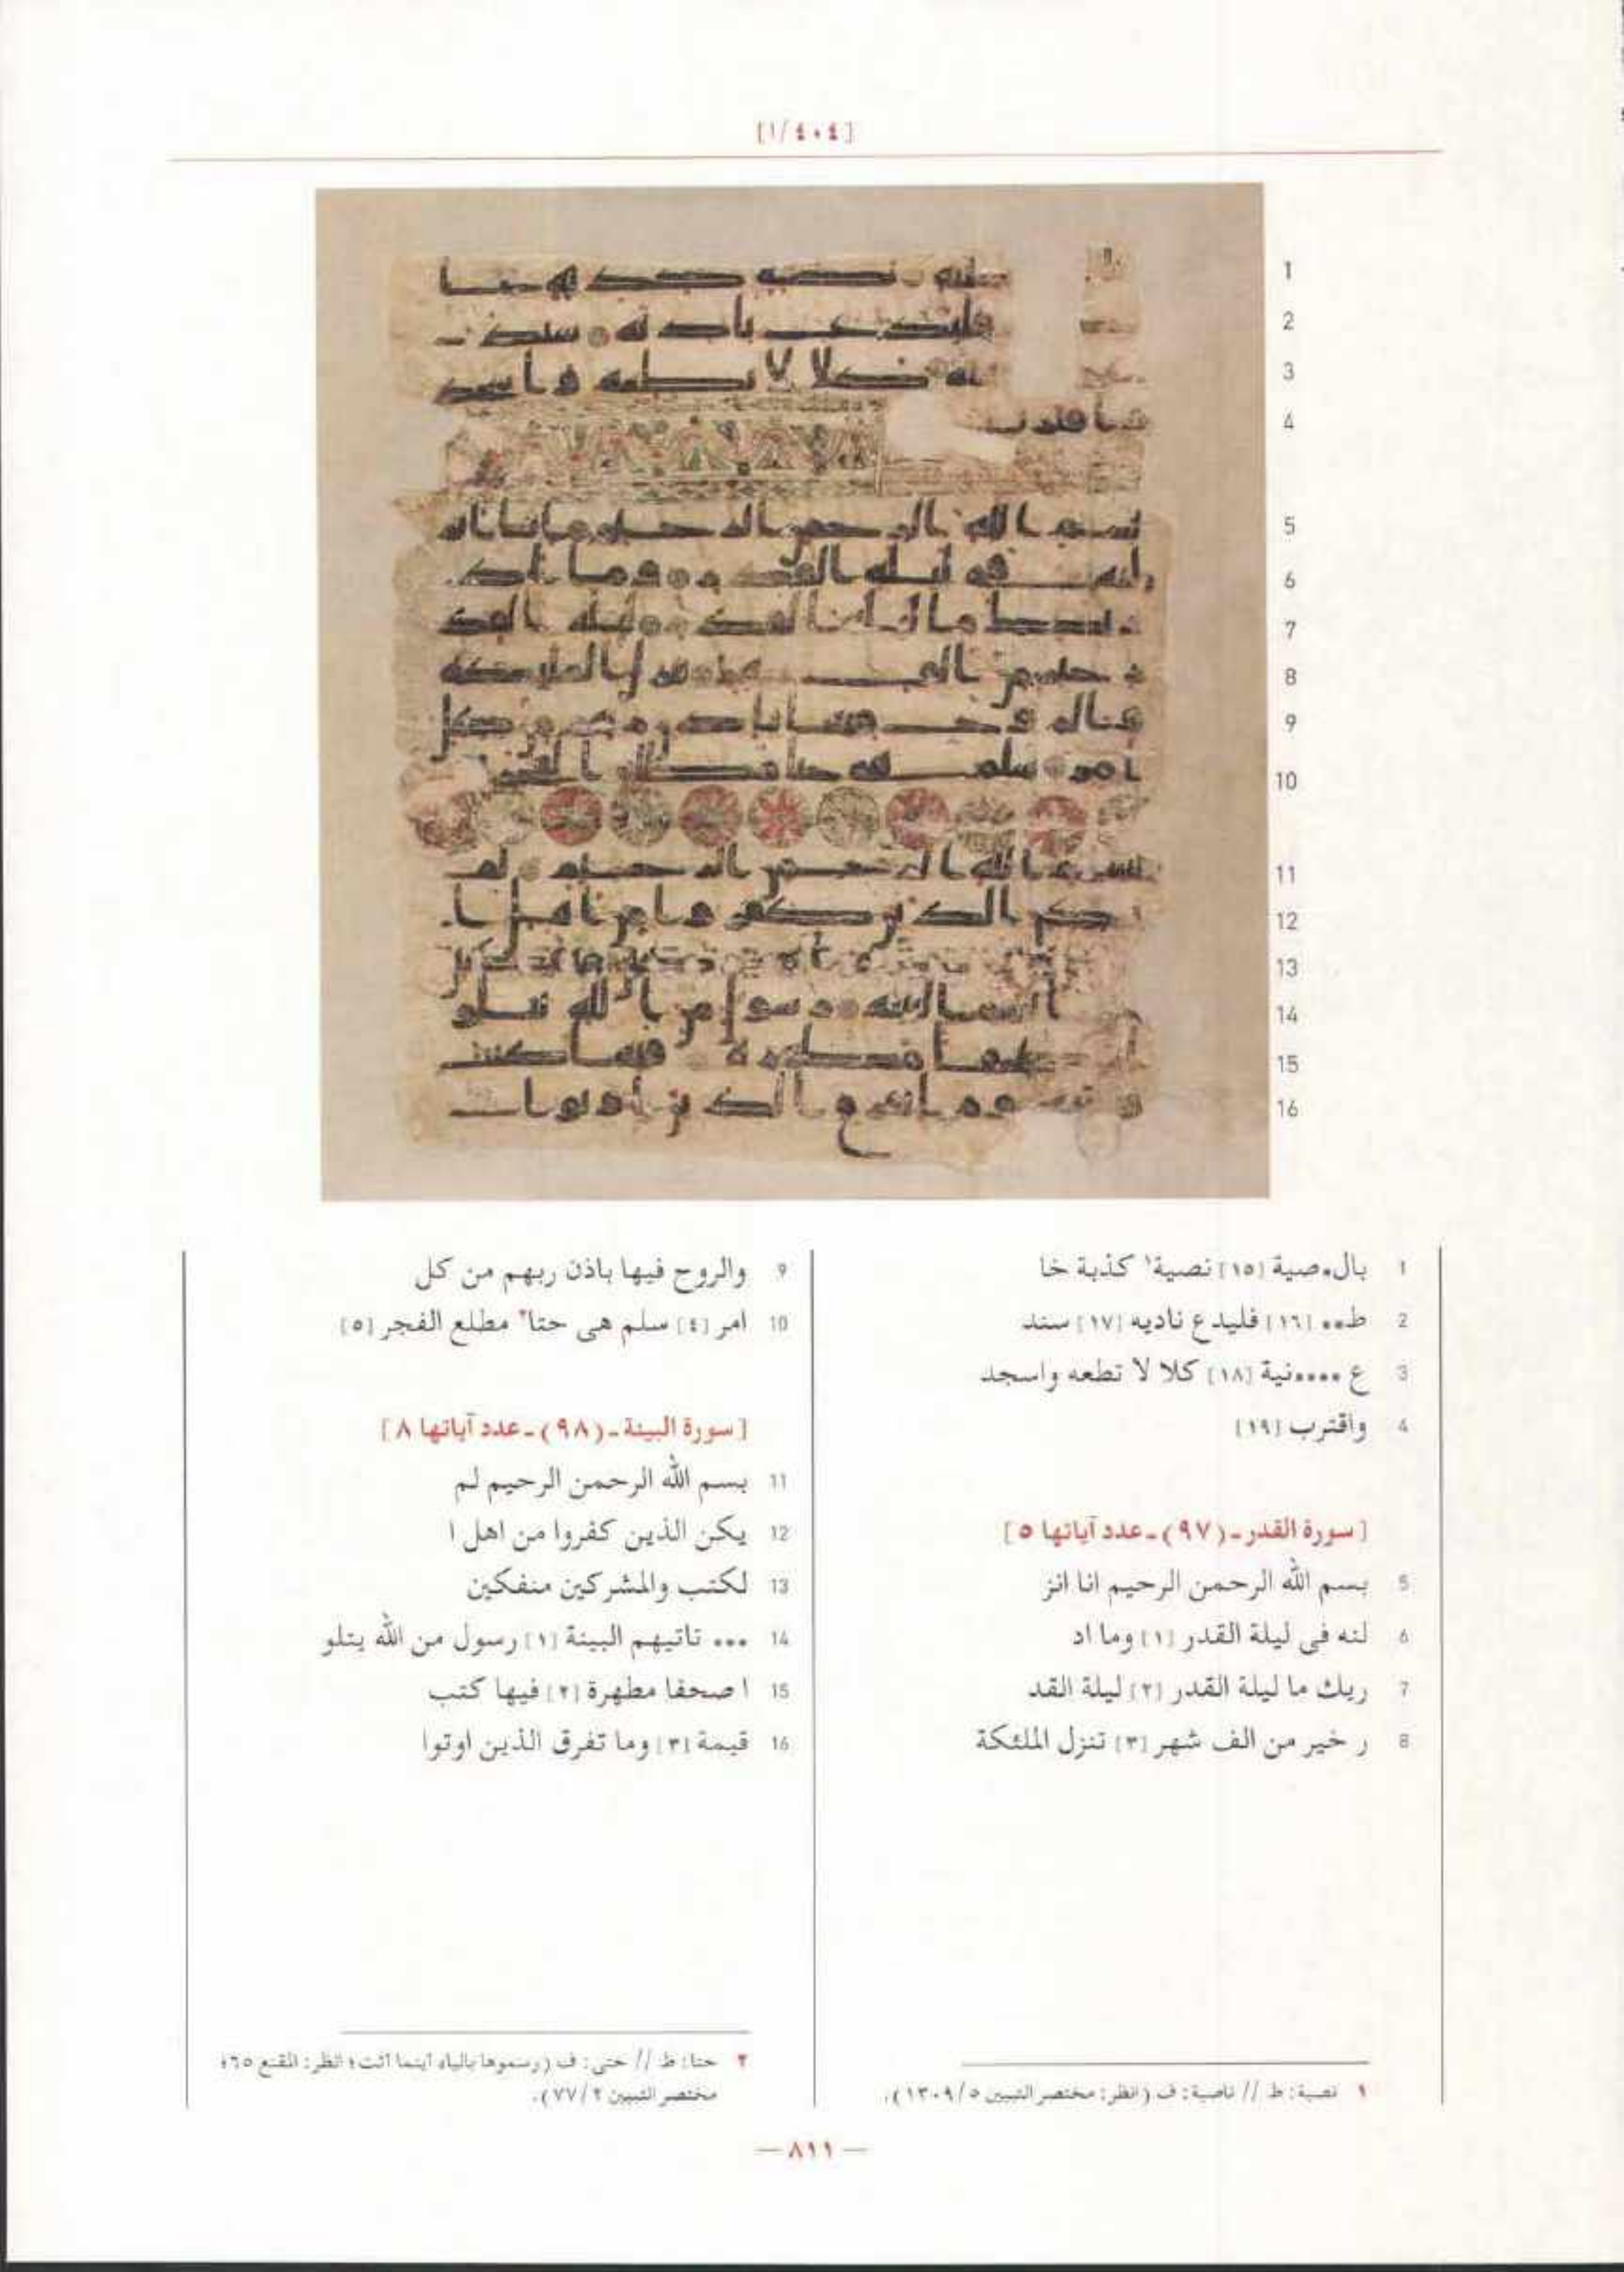 [١/٤٠٤]
1
2
3
4
5
6
7
8
9
10
11
12
13
14
15
16
1 بال•صية [١٥] نصية١ كذبة خا
2 ط•• [١٦] فليدع ناديه [١٧] سند
3 ع ••••نية [١٨] كلا لا تطعه واسجد
4 واقترب [١٩]
[سورة القدر ـ (٩٧) ـ عدد آياتها ٥]
5 بسم الله الرحمن الرحيم انا انز
6 لنه فى ليلة القدر [١] وما اد
7 ريك ما ليلة القدر [٢] ليلة القد
8 ر خير من الف شهر [٣] تنزل الملئكة
١ نصية: ط // ناصية: ف (انظر: مختصر التبيين ٥/١٣٠٩).
9 والروح فيها باذن ربهم من كل
10 امر [٤] سلم هى حتا٢ مطلع الفجر [٥]
[سورة البينة ـ (٩٨) ـ عدد آياتها ٨]
11 بسم الله الرحمن الرحيم لم
12 يكن الذين كفروا من اهل ا
13 لكتب والمشركين منفكين
14 ••• تاتيهم البينة [١] رسول من الله يتلو
15 ا صحفا مطهرة [٢] فيها كتب
16 قيمة [٣] وما تفرق الذين اوتوا
٢ حتا: ط // حتى: ف (رسموها بالياء أينما أتت؛ انظر: المقنع ٦٥؛
مختصر التبيين ٢/٧٧).
— ٨١١ —